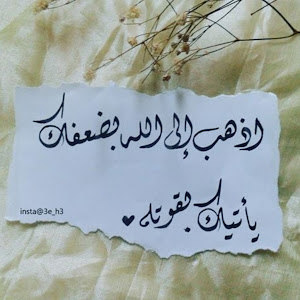 اذهب إلى الله بضعفك
يأتيك بقوته ♥
insta@3e_h3